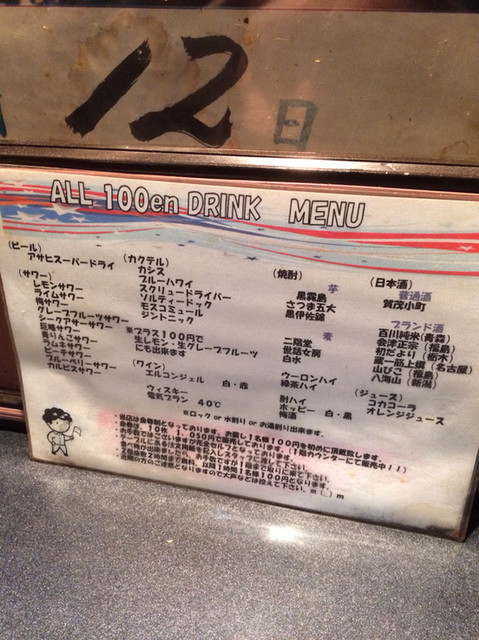 12日
ALL 100en DRINK MENU
(ビール)
アサヒスーパードライ
(サワー)
レモンサワー
ライムサワー
梅サワー
グレープフルーツサワー
シークアサーサワー
巨峰サワー
青りんごサワー
ラムネサワー
ピーチサワー
ブルーベリーサワー
カルピスサワー
(カクテル)
カシス
ブルーハワイ
スクリュードライバー
ソルティードック
モスコミュール
ジントニック
※プラス100円で
生レモン・生グレープフルーツ
にも出来ます
(ワイン)
エルコンジェル 白・赤
ウィスキー
電気ブラン 40℃
(焼酎)
芋
黒霧島
さつま五大
黒伊佐錦
麦
二階堂
世話女房
白水
ウーロンハイ
緑茶ハイ
酎ハイ
ホッピー 白・黒
梅酒
(日本酒)
普通酒
賀茂小町
ブランド酒
百川純米(青森)
会津正宗(福島)
初だより(栃木)
蔵一筋上撰(名古屋)
山びこ(福島)
八海山(新潟)
(ジュース)
コカコーラ
オレンジジュース
※ロック or 水割り or お湯割り出来ます。